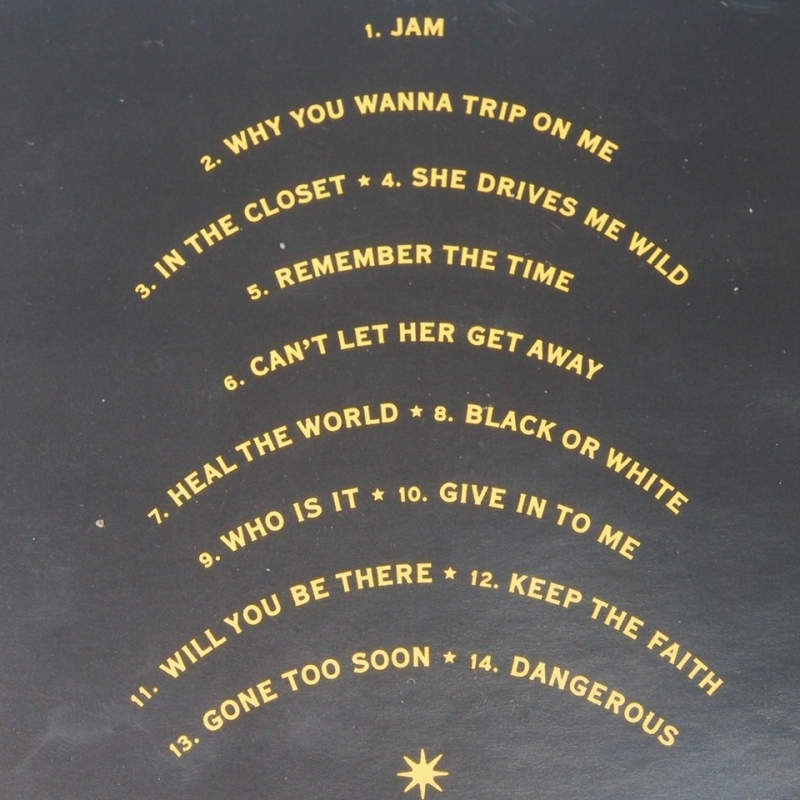 1. JAM
2. WHY YOU WANNA TRIP ON ME
3. IN THE CLOSET ★ 4. SHE DRIVES ME WILD
5. REMEMBER THE TIME
6. CAN'T LET HER GET AWAY
7. HEAL THE WORLD ★ 8. BLACK OR WHITE
9. WHO IS IT ★ 10. GIVE IN TO ME
11. WILL YOU BE THERE ★ 12. KEEP THE FAITH
13. GONE TOO SOON ★ 14. DANGEROUS